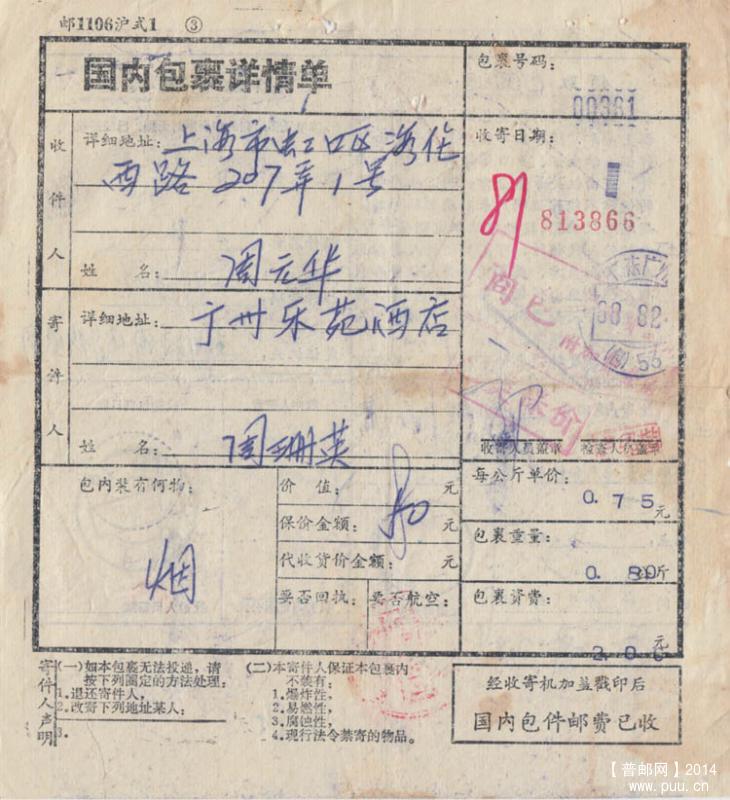 邮1106沪式1 ③
国内包裹详情单
包裹号码:
00361
收件人
详细地址: 上海市虹口区海伦
西路207弄1号
姓 名: 周元华
收寄日期:
81
813866
寄件人
详细地址: 广州乐苑酒店
姓 名: 周珊英
商已
保价
88 02
56
收寄人员盖章 检查人员盖章
包内装有何物:
烟
价 值: 80 元
保价金额: 元
代收货价金额: 元
要否回执: 要否航空:
每公斤单价:
0.75元
包裹重量:
0.80公斤
包裹资费:
元
寄件人声明
(一)如本包裹无法投递,请
按下列圈定的方法处理:
1.退还寄件人,
2.改寄下列地址某人:
3.
(二)本寄件人保证本包裹内
不装有:
1.爆炸性,
2.易燃性,
3.腐蚀性,
4.现行法令禁寄的物品。
经收寄机加盖戳印后
国内包件邮费已收
【普邮网】2014
www.puu.cn